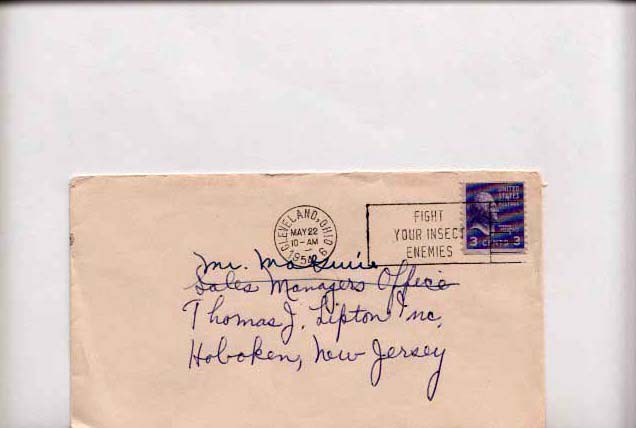 CLEVELAND, OHIO
MAY 22
10-AM
1954
FIGHT
YOUR INSECT
ENEMIES
UNITED
STATES
POSTAGE
3 CENTS 3
Mr. McGuire
Sales Managers Office
Thomas J. Lipton Inc,
Hoboken, New Jersey